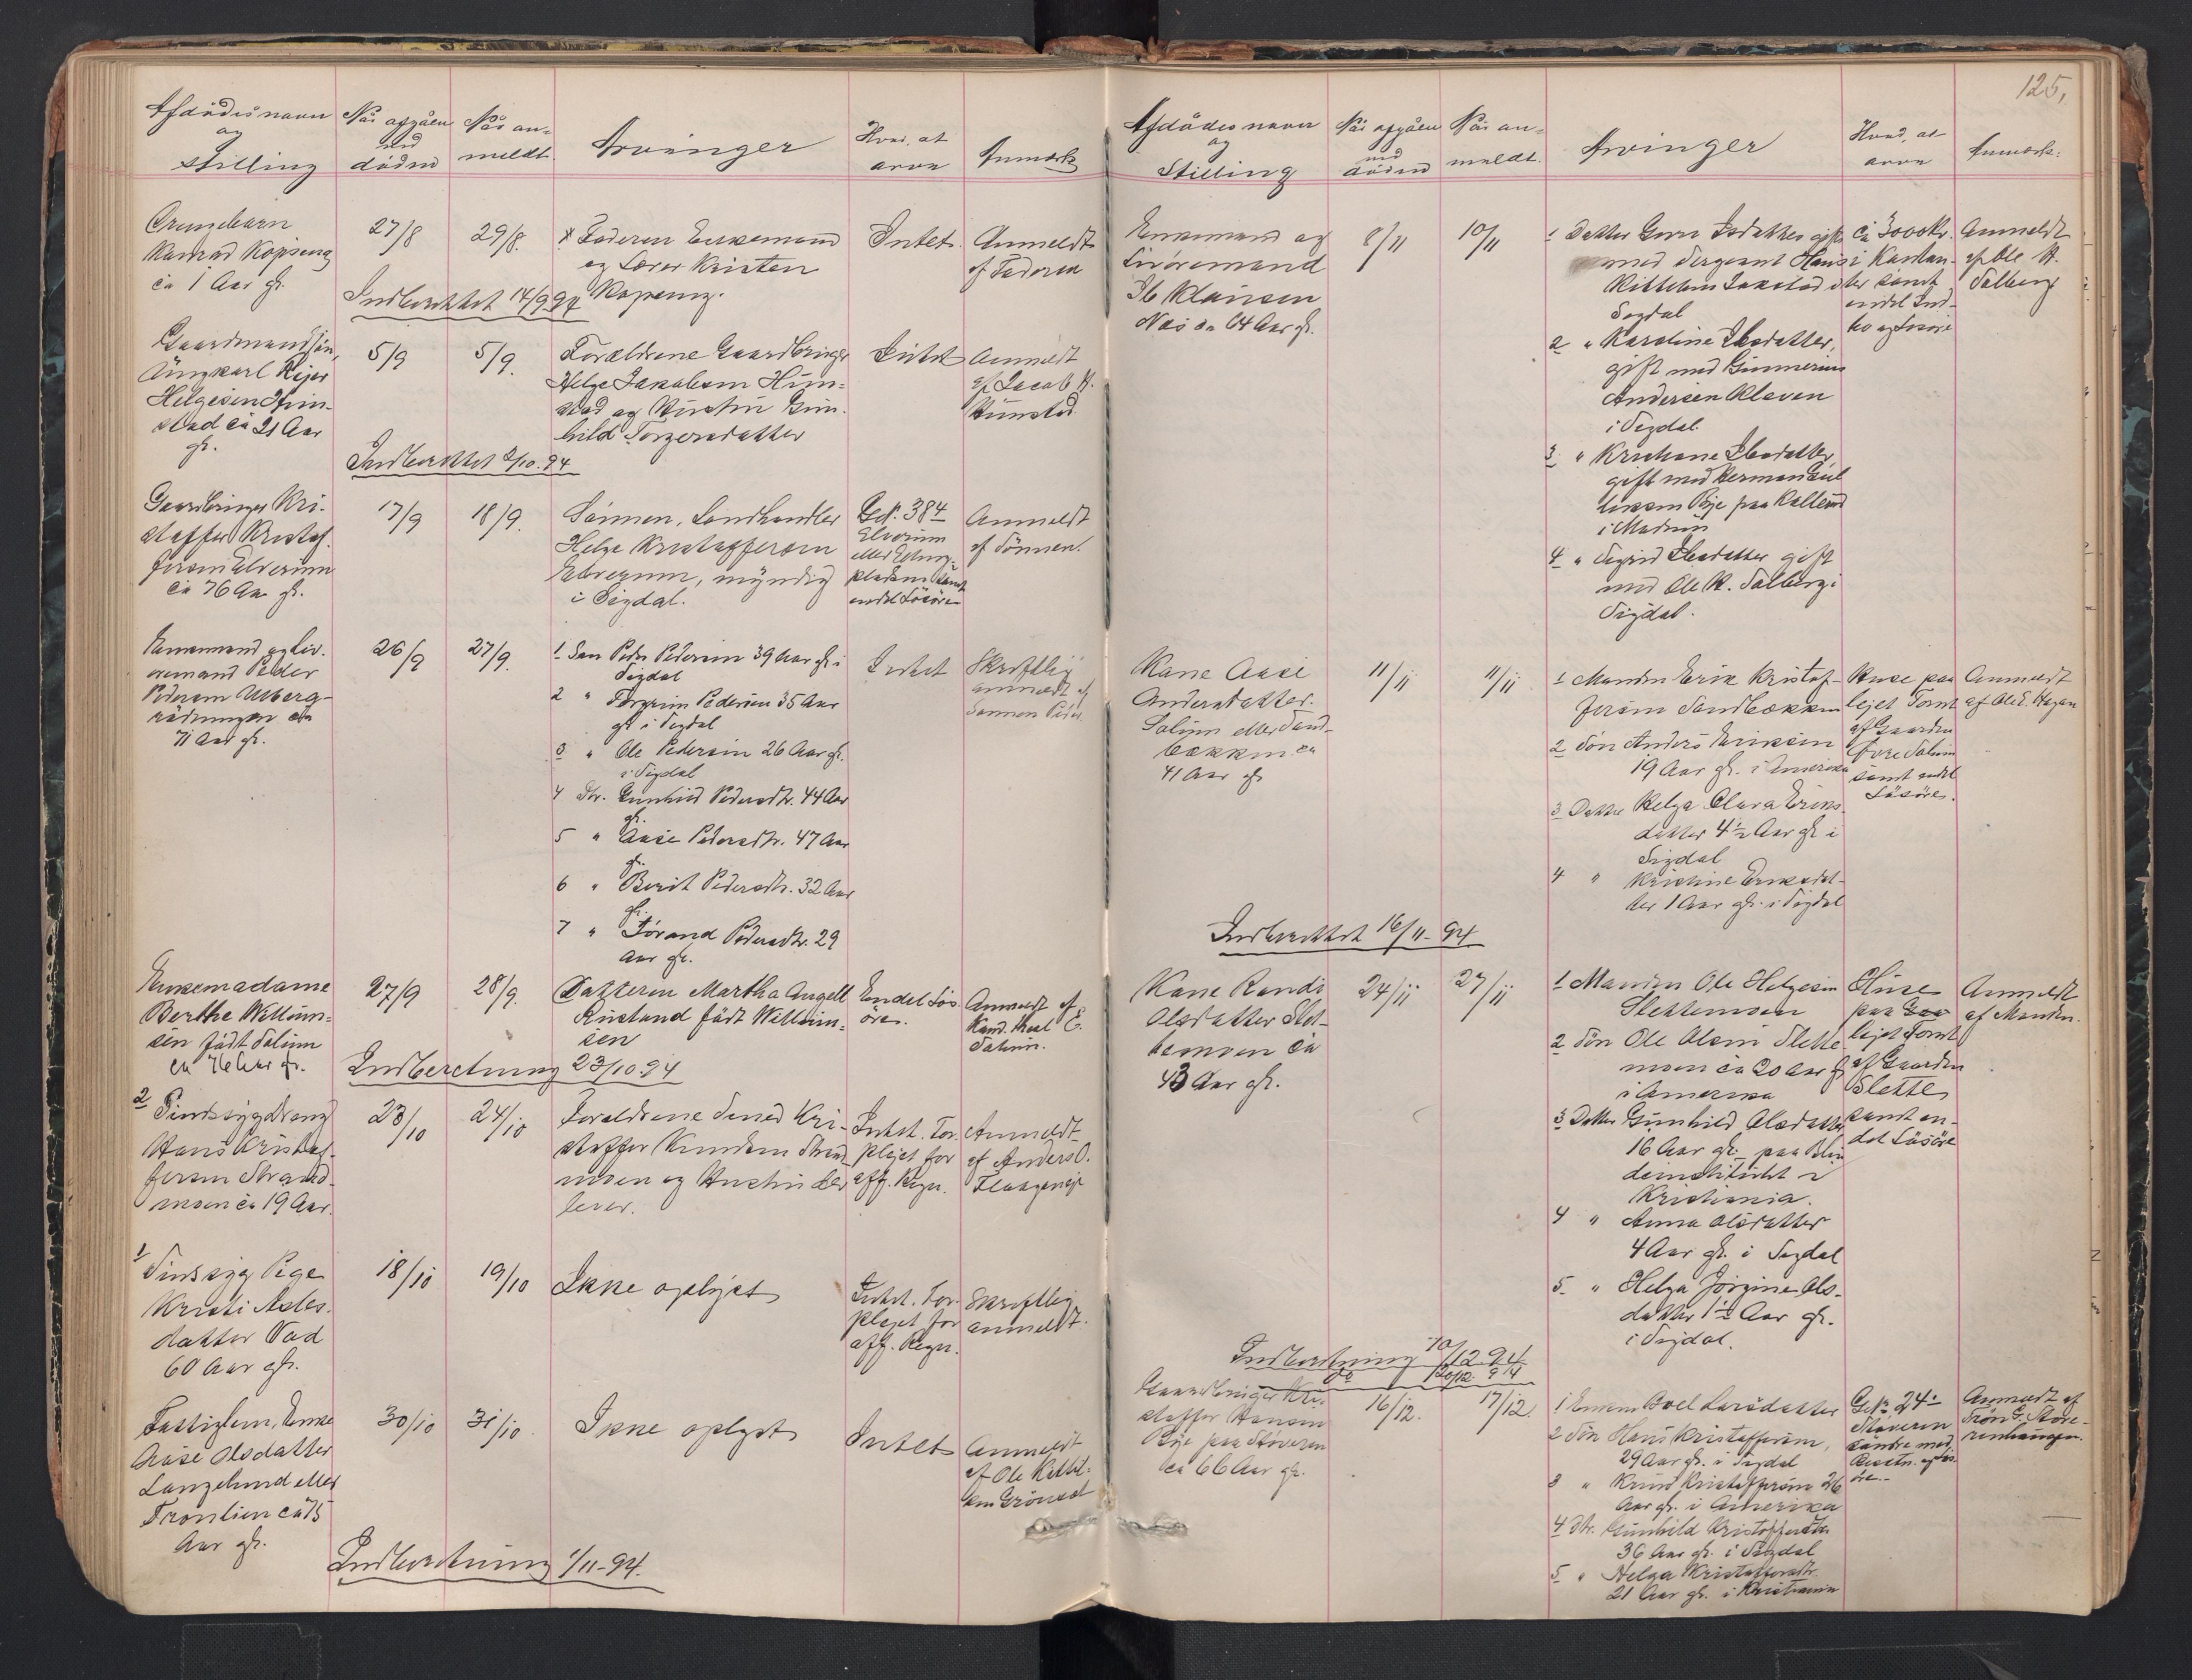 Afdödes navn
og
Stilling
Når afgåen
ved
döden
Når an-
meldt
Arvinger
Hvad, at
arve
Anmærk
Drengebarn
Konrad Kopseng
ca 1 Aar gl.
27/8
29/8
Faderen Enkemand
og Lærer Kristen
Kopseng.
Intet.
Anmeldt
af Faderen
Indberettet 14/9 94
Gaardmandssön,
Ungkarl Rejer
Helgesen Hiim-
stad ca 21 Aar
gl.
5/9
5/9.
Forældrene Gaardbruger
Helge Jakobsen Hiim-
stad og Hustru Gun-
hild Torgersdatter
Intet
Anmeldt
af Jacob H.
Hiimstad
Indberettet 2/10. 94
Gaardbruger Kri-
stoffer Kristof-
fersen Elverum
ca 76 Aar gl.
17/9
18/9.
Sönnen, Landhandler
Helge Kristoffersen
Elverum, myndig
i Sigdal.
G. N. 384
Elverum
eller
pladsen samt
endel Lösöre
Anmeldt
af Sönnen.
Enkemand og Liv-
öremand Peder
Pedersen
ca
71 Aar gl.
26/9
27/9.
1 Sön Peder Pedersen 39 Aar gl. i
Sigdal
2 " Torgrim Pedersen 35 Aar
gl i Sigdal
3 " Ole Pedersen 26 Aar gl.
i Sigdal
4 Dtr. Gunhild Pedersdtr. 44 Aar
gl.
5 " Aase Pedersdtr. 47 Aar
gl.
6 " Berit Pedersdtr. 32 Aar
gl.
7 " Jörand Pedersdtr. 29
Aar gl.
Intet
Skriftlig
anmeldt af
Sönnen Peder
Enkemadame
Berthe Willum-
sen födt Solum
ca 76 Aar gl.
27/9
28/9.
Datteren Martha Angell
Rustand födt Willum-
sen
Endel Lös-
öre.
Anmeldt af
Kand. theol E.
Solum.
Indberetning 23/10. 94
2 Sindssyg Dreng
Hans Kristof-
fersen Strand-
moen ca 19 Aar.
23/10
24/10
Forældrene Smed Kri-
stoffer Knudsen Strand-
moen og Hustru
lever.
Intet. For-
plejet for
off. Regn.
Anmeldt
af Anders O.
1 Sindssyg Pige
Kristi Asles-
datter Vad
60 Aar gl.
18/10
19/10
Ikke oplyst
Intet. For-
plejet for
off. Regn.
Skriftlig
anmeldt.
Fattiglem, Enke
Aase Olsdatter
Langelund eller
ca 75
Aar gl.
30/10
31/10
Ikke oplyst
Intet
Anmeldt
af Ole Kittil-
sen Grönset
Indberetning 1/11-94.
125,
Afdödes navn
og
Stilling
Når afgåen
ved
döden
Når an-
meldt.
Arvinger
Hvad, at
arve
Anmærk:
Enkemand og
Livöremand
Ib Klausen
Næs ca 64 Aar gl.
8/11
10/11
1 Datter Guri Ibsdatter gift
med Sergeant Hans
Kittelsen Jokstad i
Sigdal
2 " Karoline Ibsdatter,
gift med Gunnerius
Andersen Kleven
i Sigdal.
3 " Kristiane Ibsdatter,
gift med Herman Gul-
liksen Bye paa
i Modum
4 " Sigrid Ibsdatter gift
med Ole K. Solberg i
Sigdal.
Ca 3000 Kr.
i Kontan-
ter samt
endel Ind-
bo og Lösöre
Anmeldt
af Ole K.
Solberg
Kone Aase
Andersdatter.
Solum eller Sand-
bækken ca
41 Aar gl
11/11
11/11
1 Manden Erik Kristof-
fersen Sandbækken
2 Sön Anders Eriksen
19 Aar gl. i Amerika
3 Datter Helga Clara Eriks-
datter 4½ Aar gl i
Sigdal
4 " Kristine Eriksdat-
ter 1 Aar gl. i Sigdal
Huse paa
lejet Tomt
af Gaarden
Övre Solum
samt endel
Lösöre.
Anmeldt
af Ole E. Hagan
Indberettet 16/11-94
Kone Randi
Olsdatter Slet-
temoen ca
43 Aar gl.
24/11
27/11
1 Manden Ole Helgesen
Slettemoen
2 Sön Ole Olsen Slette-
moen ca 20 Aar gl
i Amerika
3 Datter Gunhild Olsdatter
16 Aar gl. paa Blin-
deinstitutet i
Kristiania.
4 " Anna Olsdatter
4 Aar gl. i Sigdal
5 " Helga Jörgine Ols-
datter 1½ Aar gl.
i Sigdal.
Huse
paa
lejet Tomt
af Gaarden
Slette
samt en-
del Lösöre
Anmeldt
af Manden.
Indberetning 10/12-94
do 20/12. 94
Gaardbruger Kri-
stoffer Hansen
Bye paa Stöveren
ca 66 Aar gl.
16/12.
17/12.
1 Enken Boel Larsdatter
2 Sön Hans Kristoffersen,
29 Aar gl. i Sigdal
3 " Knud Kristoffersen 26
Aar gl. i Amerika
4 Dtr. Gunhild Kristoffersdtr.
36 Aar gl. i Sigdal
5 " Helga Kristoffersdtr.
21 Aar gl. i Kristiania
G. N. 24
Stöveren
söndre med
og Lös-
öre.
Anmeldt af